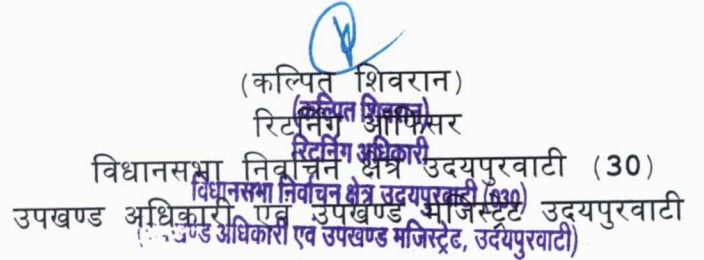 (कल्पित शिवरान)
(कल्पित शिवरान)
रिटर्निंग ऑफिसर
रिटर्निंग अधिकारी
विधानसभा निर्वाचन क्षेत्र उदयपुरवाटी (30)
विधानसभा निर्वाचन क्षेत्र उदयपुरवाटी (030)
उपखण्ड अधिकारी एवं उपखण्ड मजिस्ट्रेट उदयपुरवाटी
अधिकारी एवं उपखण्ड मजिस्ट्रेट, उदयपुरवाटी)